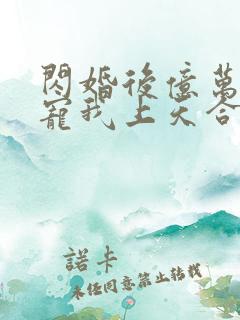 閃婚後億萬
寵我上天合
諾卡
未經同意禁止轉載